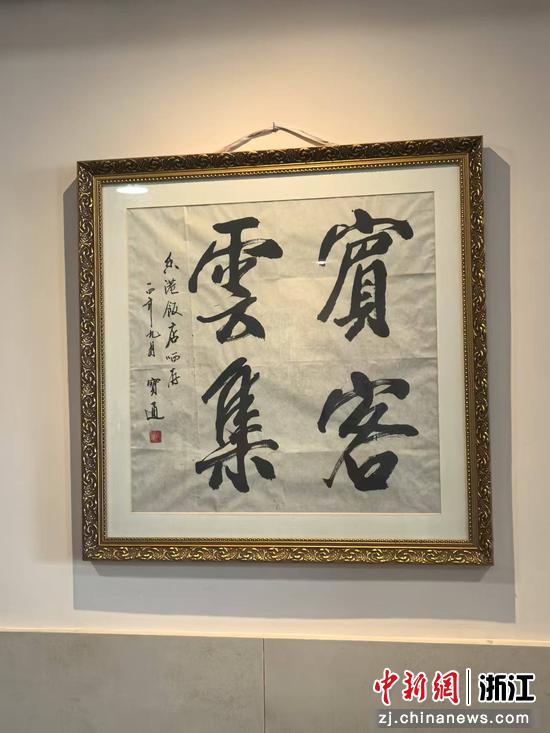 賓客
雲集
香港飯店哂存
丁酉年九月 寶通
中新網 浙江
zj.chinanews.com